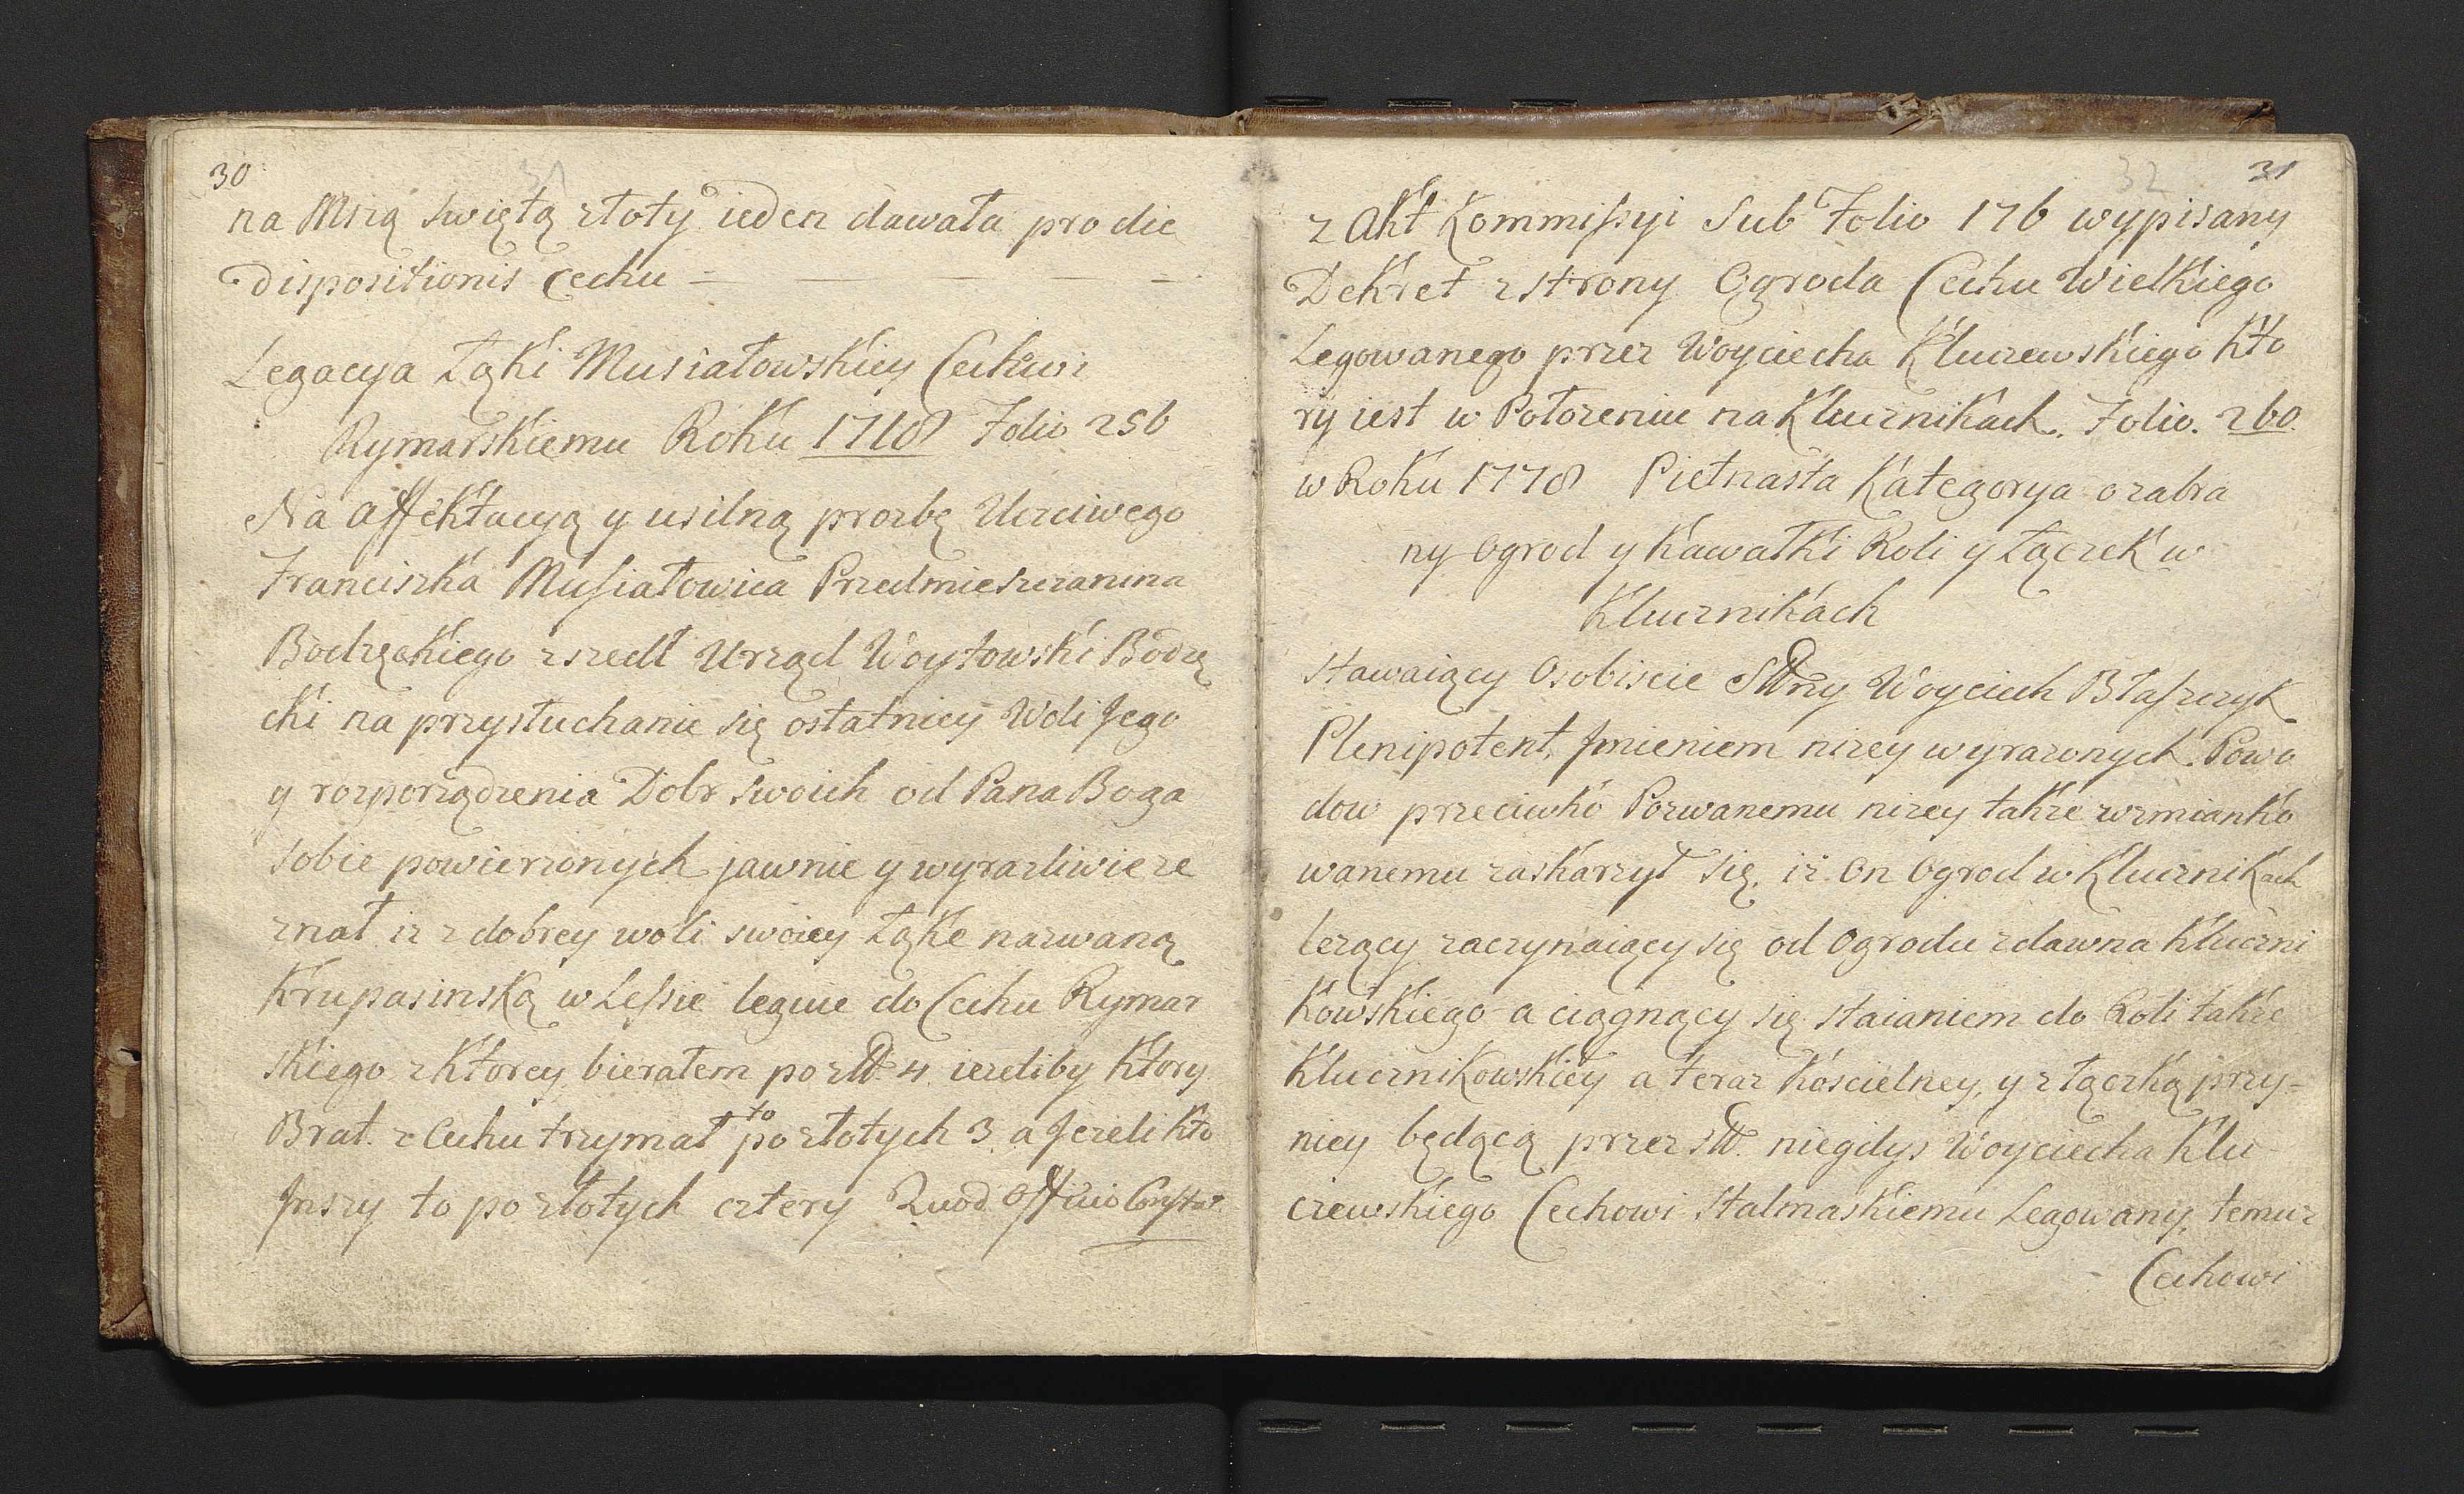 30
31
na Mszą Swiętą złoty ieden dawała pro die
Dispositionis Cechu
Legacya Łąki Musiałowskiey Cechowi
Rymarskiemu Roku 1718 Folio 256
Na affektacyą y usilną prozbę Uczciwego
Franciszka Musiałowica Przedmieszczanina
Bodzęckiego zszedł Urząd Woytowski Bodzę
cki na przysłuchanie się ostatniey Woli Jego
y rozporządzenia Dobr swoich od Pana Boga
sobie powierzonych jawnie y wyrazliwie ze
znał iz z dobrey woli swoiey Łąke nazwaną
Krupasinską w Lessie leguie do Cechu Rymar
skiego z Ktorey bierałem po zł. 4. iezeliby Ktory
Brat. z Cechu trzymał to po złotych 3. a Jezeli kto
Jnszy to po złotych cztery Quod Officio Constat.
32
31
z Akt Kommissyi Sub Folio 176 wypisany
Dekret zstrony Ogroda Cechu Wielkiego
Legowanego przez Woyciecha Kluczewskiego kto
ry iest w Połozeniu na Klucznikach. Folio. 260.
w Roku 1778 Pietnasta Kategorya o zabra
ny ogrod y kawałki Roli y Łączek w
Klucznikach
Stawaiący Osobiscie Sławny Woyciech Błaszczyk
Plenipotent, Jmieniem nizey wyrazonych. Powo
dow przeciwko Pozwanemu nizey takze wzmianko
wanemu zaskarzył się, iż on ogrod w Klucznikach
lezący zaczynaiący się od ogrodu zdawna Kluczni
kowskiego a ciągnący się staianiem do Roli takze
Klucznikowskiey a teraz koscielney, y z łączką przy-
niey będącą przez sł. niegdys Woyciecha Klu
czewskiego Cechowi Stalmaskiemu Legowany, temuz
Cechowi